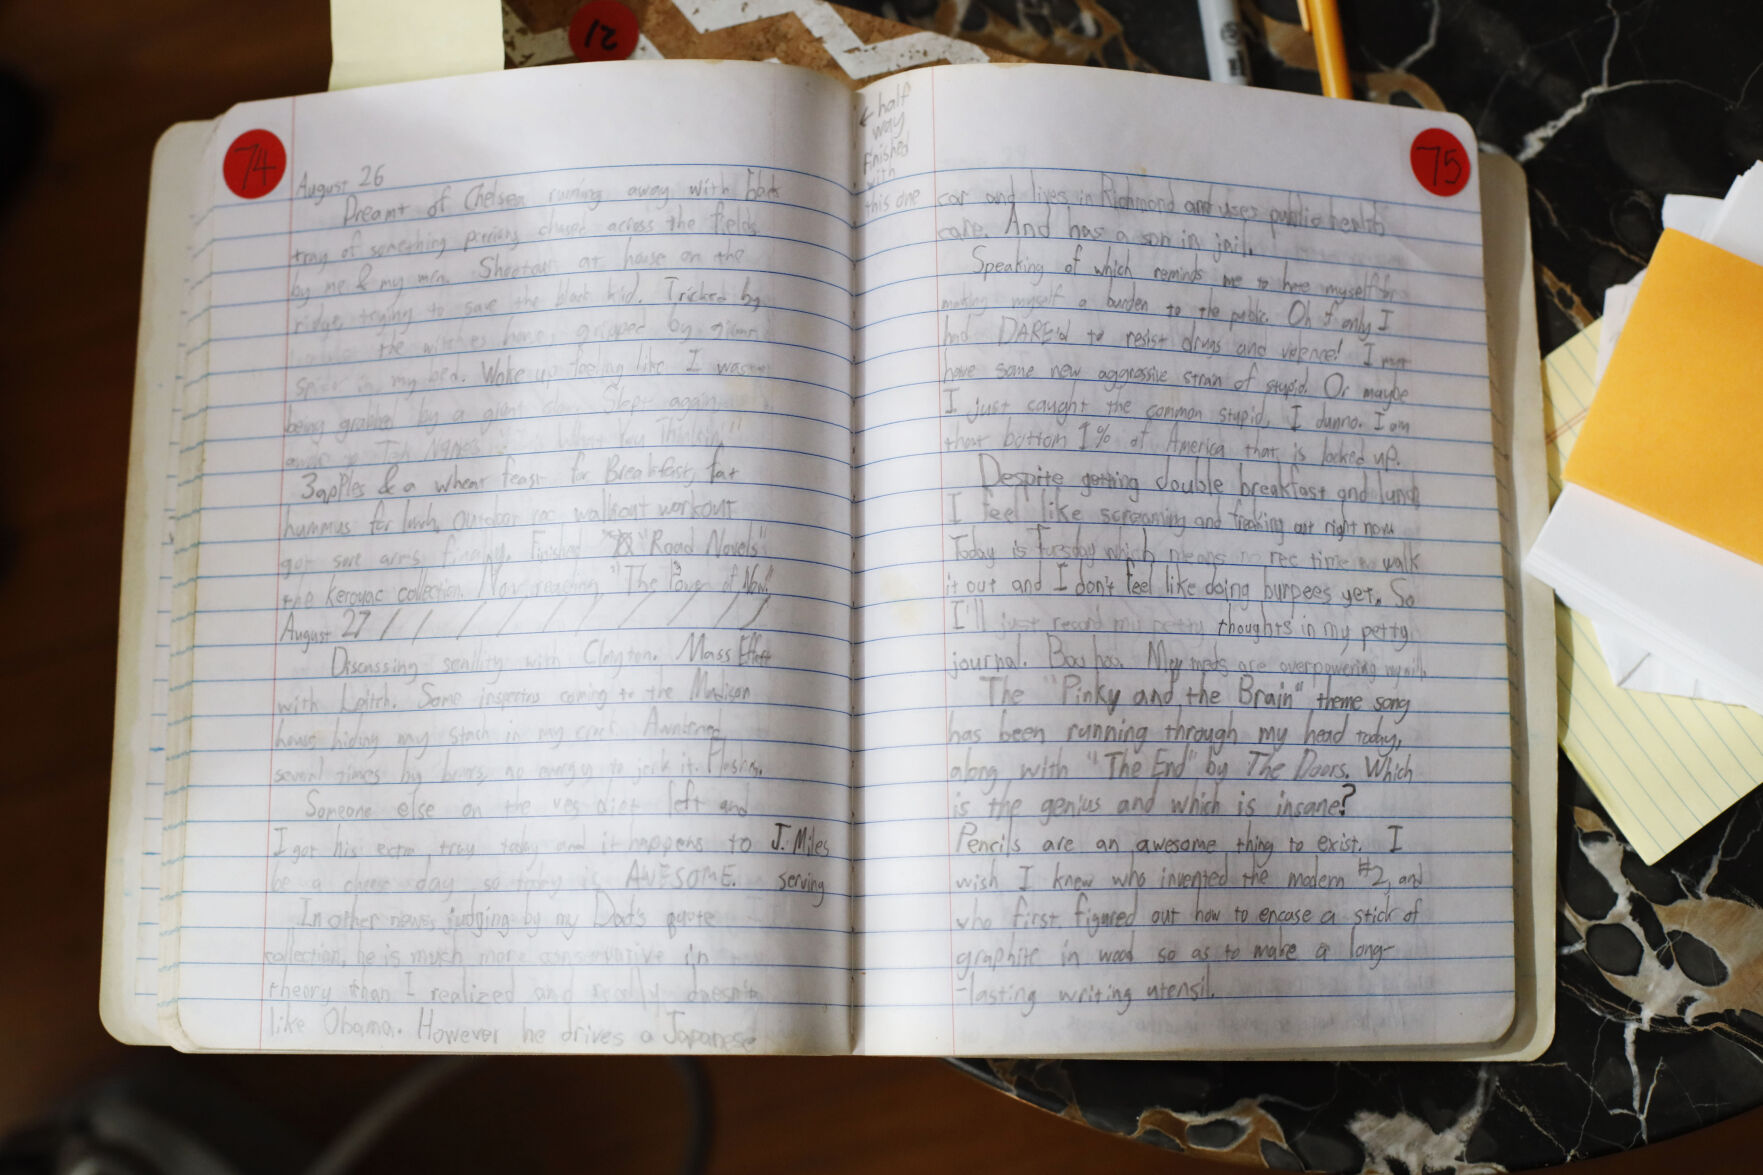 21
74
August 26
Dreamt of Chelsea running away with black
tray of something persons chased across the fields
by me & my men. Shootout at house on the
ridge, trying to save the black kid. Tricked by
the witches hand, gripped by giant
spider in my bed. Woke up feeling like I was
being grabbed by a giant Slept again
to What You Thinkin'"
3 apples & a wheat feast for Breakfast, fat
hummus for lunch, outdoor rec walkout workout
got sore arms finally. Finished "Road Novels"
the Kerouac collection. Now reading "The Power of Now."
August 27 / / / / / / / / / /
Discussing senility with Clayton. Mass Effect
with Leitch. Some inspectors coming to the Madison
house, hiding my stash in my crack. Awakened
several times by boners, no energy to jerk it.
Someone else on the veg diet left and
I got his extra tray today and it happens to
be a cheese day, so today is AWESOME.
J. Miles
serving
In other news, judging by my Dad's quote
collection, he is much more conservative in
theory than I realized and really doesn't
like Obama. However he drives a Japanese
← half
way
finished
with
this one
75
car and lives in Richmond and uses public health
care. And has a son in jail.
Speaking of which reminds me to hate myself for
making myself a burden to the public. Oh if only I
had DARE'd to resist drugs and violence! I must
have some new aggressive strain of stupid. Or maybe
I just caught the common stupid, I dunno. I am
that bottom 1% of America that is locked up.
Despite getting double breakfast and lunch
I feel like screaming and freaking out right now
Today is Tuesday which means no rec time to walk
it out and I don't feel like doing burpees yet. So
I'll just record my petty thoughts in my petty
journal. Boo hoo. My meds are overpowering my
The "Pinky and the Brain" theme song
has been running through my head today,
along with "The End" by The Doors. Which
is the genius and which is insane?
Pencils are an awesome thing to exist. I
wish I knew who invented the modern #2, and
who first figured out how to encase a stick of
graphite in wood so as to make a long-
-lasting writing utensil.